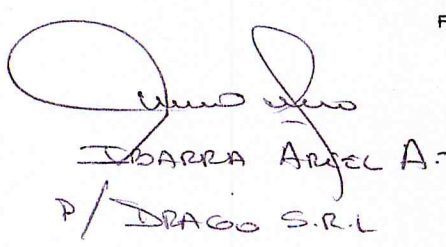 F
IBARRA ARIEL A.-
P/ DRAGO S.R.L